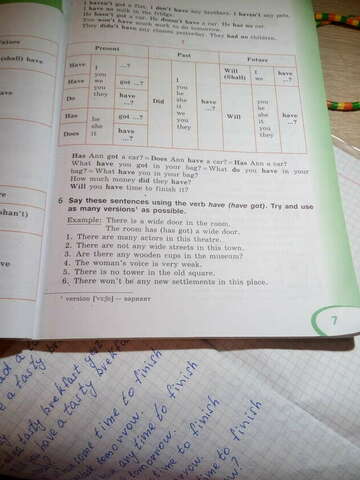 haven't got a flat. I don't have any brothers. I haven't any pets.
I have no milk in the fridge.
He hasn't got a car. He doesn't have a car. He has no car.
You won't have much work to do tomorrow.
They didn't have any classes yesterday. They had no children.
Future
(shall) have
have
shan't)
ve
Present
Past
Future
Have
I
you
we
you
they
...?
Have
got ...?
Do
have
...?
Has
he
she
it
got ...?
Does
have
...?
Did
I
you
he
she
it
we
you
they
have
...?
Will
(Shall)
I
we
have
...?
Will
you
he
she
it
you
they
Has Ann got a car? = Does Ann have a car? = Has Ann a car?
What have you got in your bag? = What do you have in your
bag? = What have you in your bag?
How much money did they have?
Will you have time to finish it?
6 Say these sentences using the verb have (have got). Try and use
as many versions¹ as possible.
Example: There is a wide door in the room.
The room has (has got) a wide door.
1. There are many actors in this theatre.
2. There are not any wide streets in this town.
3. Are there any wooden cups in the museum?
4. The woman's voice is very weak.
5. There is no tower in the old square.
6. There won't be any new settlements in this place.
¹ version [ˈvɜːʃn] — вариант
7
a tasty breakfast
tasty breakfast
have a tasty
some time to finish
tomorrow.
any time to finish
tomorrow.
time to finish
to finish